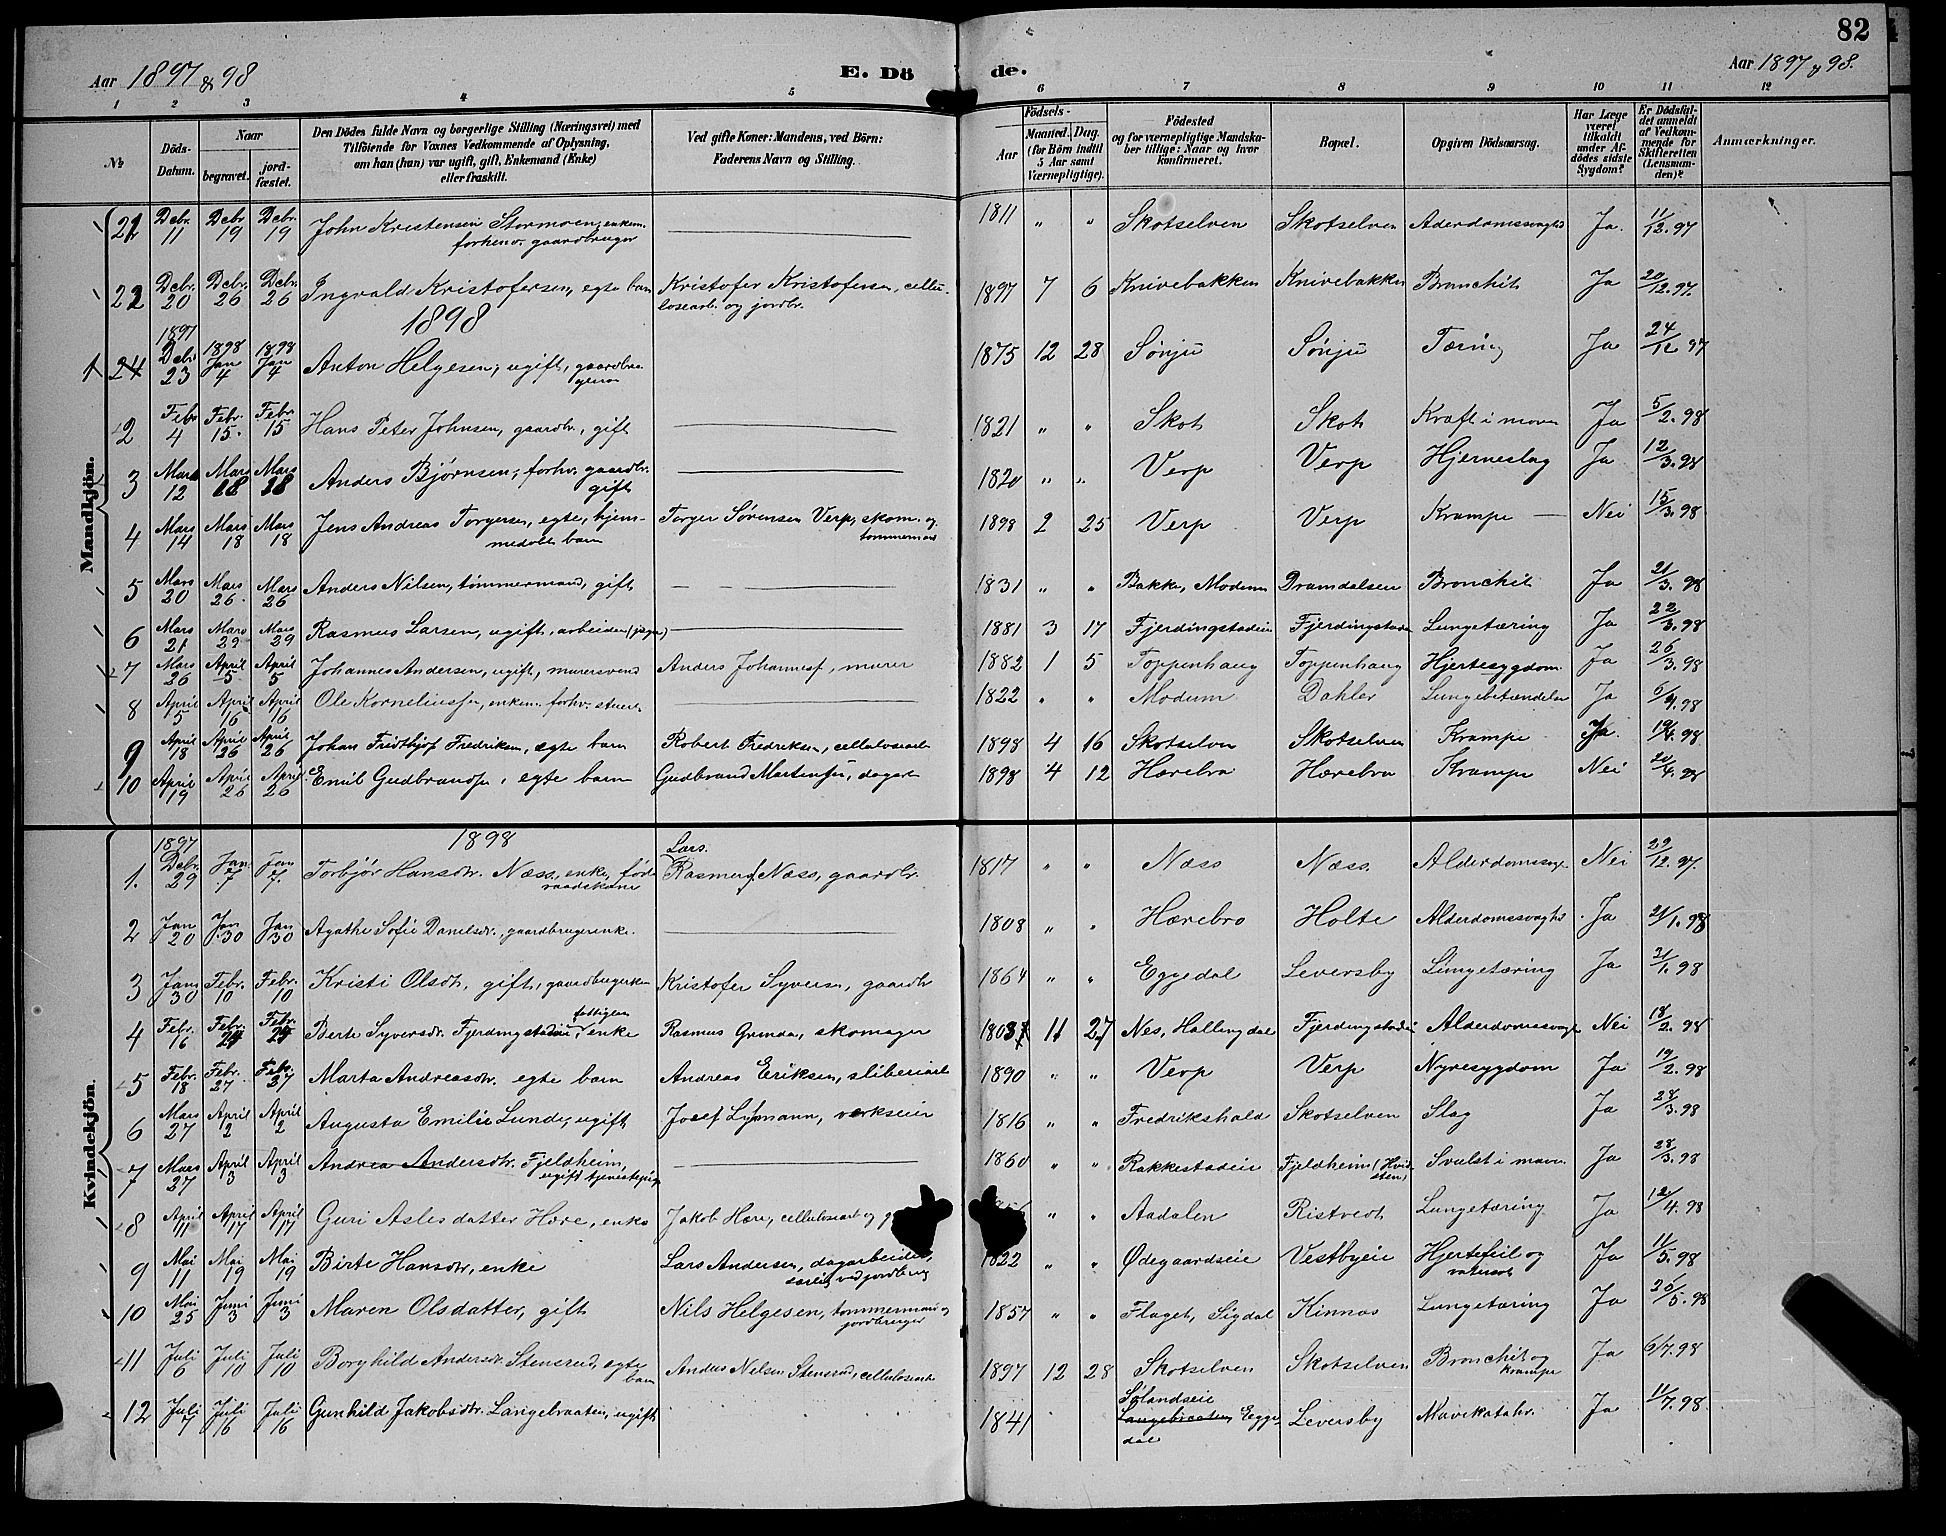 82
Aar 1897 & 98
E. Dö de.
Aar 1897 & 98.
1 2 3 4 5 6 7 8 9 10 11 12
№
Döds-Datum.
Naar
begravet.
jordfæstet.
Den Dödes fulde Navn og borgerlige Stilling (Næringsvei) med
Tilföiende for Voxnes Vedkommende af Oplysning,
om han (hun) var ugift, gift, Enkemand (Enke)
eller fraskilt.
Ved gifte Koner: Mandens, ved Börn:
Faderens Navn og Stilling.
Födsels-
Aar
Maaned. Dag.
(for Börn indtil
5 Aar samt
Værnepligtige).
Födested
og for værnepligtige Mandskaber
tillige: Naar og hvor
konfirmeret.
Bopæl.
Opgiven Dödsaarsag.
Har Læge
været
tilkaldt
under Afdödes
sidste
Sygdom?
Er Dödsfaldet
anmeldt
af Vedkommende
for
Skifteretten
(Lensmanden)?
Anmærkninger.
Mandkjön.
21 Debr. 11 Debr 19 Debr. 19 John Kristensen Stormoen, enkem. forhenv. gaardbruger 1811 " " Skotselven Skotselven Aderdomssvaghed Ja. 11/12.97
22 Debr. 20 Debr. 26 Debr. 26 Ingvald Kristofersen, egte barn Kristofer Kristofersen, cellulosearb. og jordbr. 1897 7 6 Knivebakken Knivebakken Bronchit Ja 20/12.97.
1898
1 24 1897 Debr. 23 1898 Jan 4 1898 Jan 4 Anton Helgesen, ugift, 1875 12 28 Sønju Sønju Tæring Ja 24/12 97
2 Febr 4 Febr. 15. Febr. 15 Hans Peter Johnsen, gaardbr, gift 1821 " " Skot Skot Kræft i maven Ja 5/2.98
3 Mars 12 Mars 18 Mars 18 Anders Bjørnsen, forhv. gaardbr. gift 1820 " " Verp Verp Hjerneslag Ja 12/3.98
4 Mars 14 Mars 18 Mars 18 Jens Andreas Torgersen, egte, hjemmedøbt barn Torger Sørensen Verp, skom. og tømmermand 1898 2 25 Verp Verp Krampe Nei 15/3.98
5 Mars 20 Mars 26 Mars 26 Anders Nilsen, tømmermand, gift 1831 " " Bakke, Modum Dramdalseen Bronchit Ja 21/3.98
6 Mars 21 Mars 29 Mars 29 Rasmus Larsen, ugift, arbeider 1881 3 17 Fjerdingstadeie Fjerdingstadeie Lungetæring Ja 22/3.98
7 Mars 26 April 5 April 5 Johannes Andersen, ugift, murersvend Anders Johannesf, murer 1882 1 5 Toppenhaug Toppenhaug Hjertesygdom Ja 26/3.98
8 April 5 April 16 April 16 Ole Korneliussen, enkem. forhv. 1822 " " Modum Dahler Lungebetændelse Ja 6/4.98
9 April 18 April 26 April 26 Johan Fridthjof Fredriksen, egte barn Robert Fredriksen, cellulosearb 1898 4 16 Skotselven Skotselven Krampe Ja. 19/4.98
10 April 19 April 26 April 26 Emil Gudbrandsen, egte barn Gudbrand Martensen, dagarb 1898 4 12 Hærebro Hærebro Krampe Nei 20/4.98
Kvindekjön.
1898
1. 1897 Debr. 29 Jan 7 Jan 7. Torbjør Hansdtr. Næss, enke, føderaadskone Lars. Rasmusf Næss, gaardbr. 1817 " " Næss Næss. Alderdomssvagh. Nei 29/12.97.
2 Jan 20 Jan 30 Jan 30 Agathe Sofie Danielsdr., gaardbrugerenke. 1808 " " Hærebro Holte Alderdomssvaghed Ja 21/1.98
3 Jan 30 Febr. 10 Febr. 10 Kristi Olsdtr, gift, gaardbrugerkone Kristofer Syversen, gaardbr 1864 " " Eggedal Leversby Lungetæring Ja 31/1.98
4 Febr. 16 Febr. Febr. Berte Syversdr. Fjerdingstadeie, fattiglem enke Rasmus Grenda, skomager 11 27 Nes, Hallingdal Fjerdingstadeie Alderdomssvagh Nei 18/2.98
5 Febr. 18 Febr. 27 Febr. 27 Marta Andreasdtr. egte barn Andreas Eriksen, sliberiarb 1890 " " Verp Verp Nyresygdom Ja 19/2.98
6 Mars 27 April 2 April 2 Augusta Emilie Lunde, ugift Josef, verkseier 1816 " " Fredrikshald Skotselven Slag Ja 28/3.98
7 Mars 27 April 3 April 3 Andrea Andersdtr. Fjeldheim, ugift tjenestepige 1860 " " Rakkestadeie Fjeldheim (Hvidsten) Svulst i maven Ja 28/3.98
8 April 11 April 17 April 17 Guri Aslesdatter Hære, enke Jakob Hære, cellulosearb og " " Aadalen Ristvedt Lungetæring Ja 12/4.98
9 Mai 11 Mai 19 Mai 19 Birte Hansdtr, enke Lars Andersen, dagarbeider, særlig ved jordbrug 1822 " " Ødegaardseie Vestbyeie Hjertefeil og vatersot Ja 11/5.98
10 Mai 25 Juni 3 Juni 3 Maren Olsdatter, gift Nils Helgesen, tømmermand og jordbruger 1857 " " Flaget, Sigdal Kinnas Lungetæring Ja 26/5.98
11 Juli 6 Juli 10 Juli 10 Borghild Andersdr. Stensrud, egte barn Anders Nilsen Stensrud, cellulosearb 1897 12 28 Skotselven Skotselven Bronchit og krampe Ja 6/7.98
12 Juli 7 Juli 16 Juli 16 Gunhild Jakobsdtr. Langebraaten, ugift 1841 Sølandseie Langebraaten Eggedal Leversby Mavekatahr. Ja 11/7.98